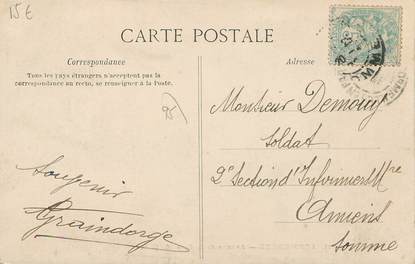 15€
CARTE POSTALE
Correspondance
Adresse
Tous les pays étrangers n'acceptent pas la
correspondance au recto, se renseigner à la Poste.
95)
Monsieur Demouy
Soldat
2e Section d'Infirmiers Mre
Amiens
Somme
Souvenir
Graindorge